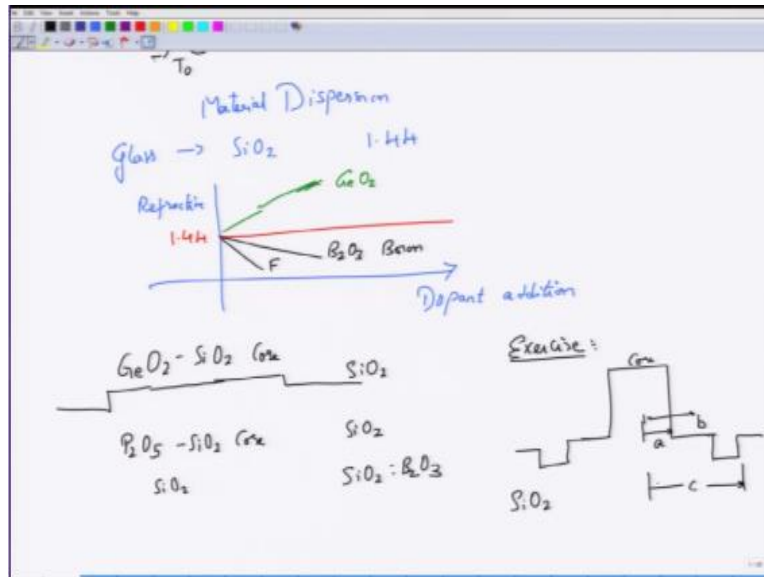 T0
Material Dispersion
Glass → SiO2 1.44
GeO2
Refractive
1.44
B2O3 Boron
F
Dopant addition
GeO2 - SiO2 Core SiO2
P2O5 - SiO2 Core SiO2
SiO2 SiO2 : B2O3
Exercise :
Core
b
a
c
SiO2